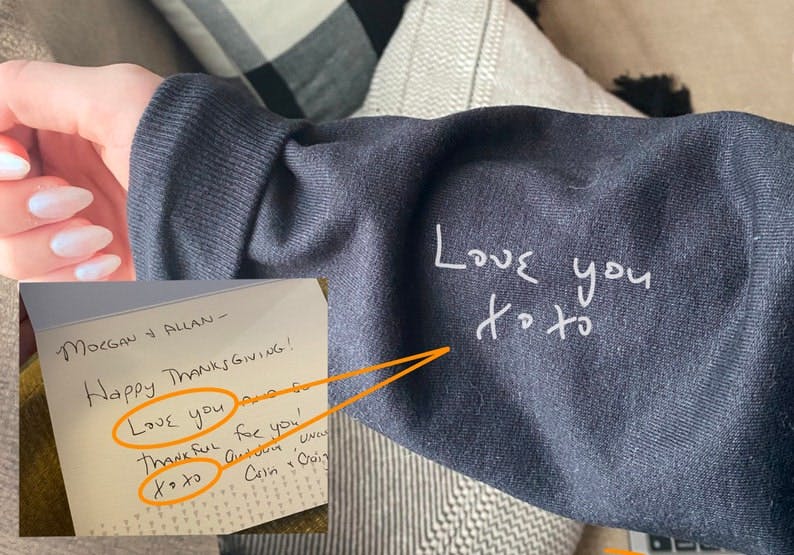 Love you
xoxo
Morgan & Allan –
Happy Thanksgiving!
Love you and so
thankful for you!
xoxo
Colin & Craig